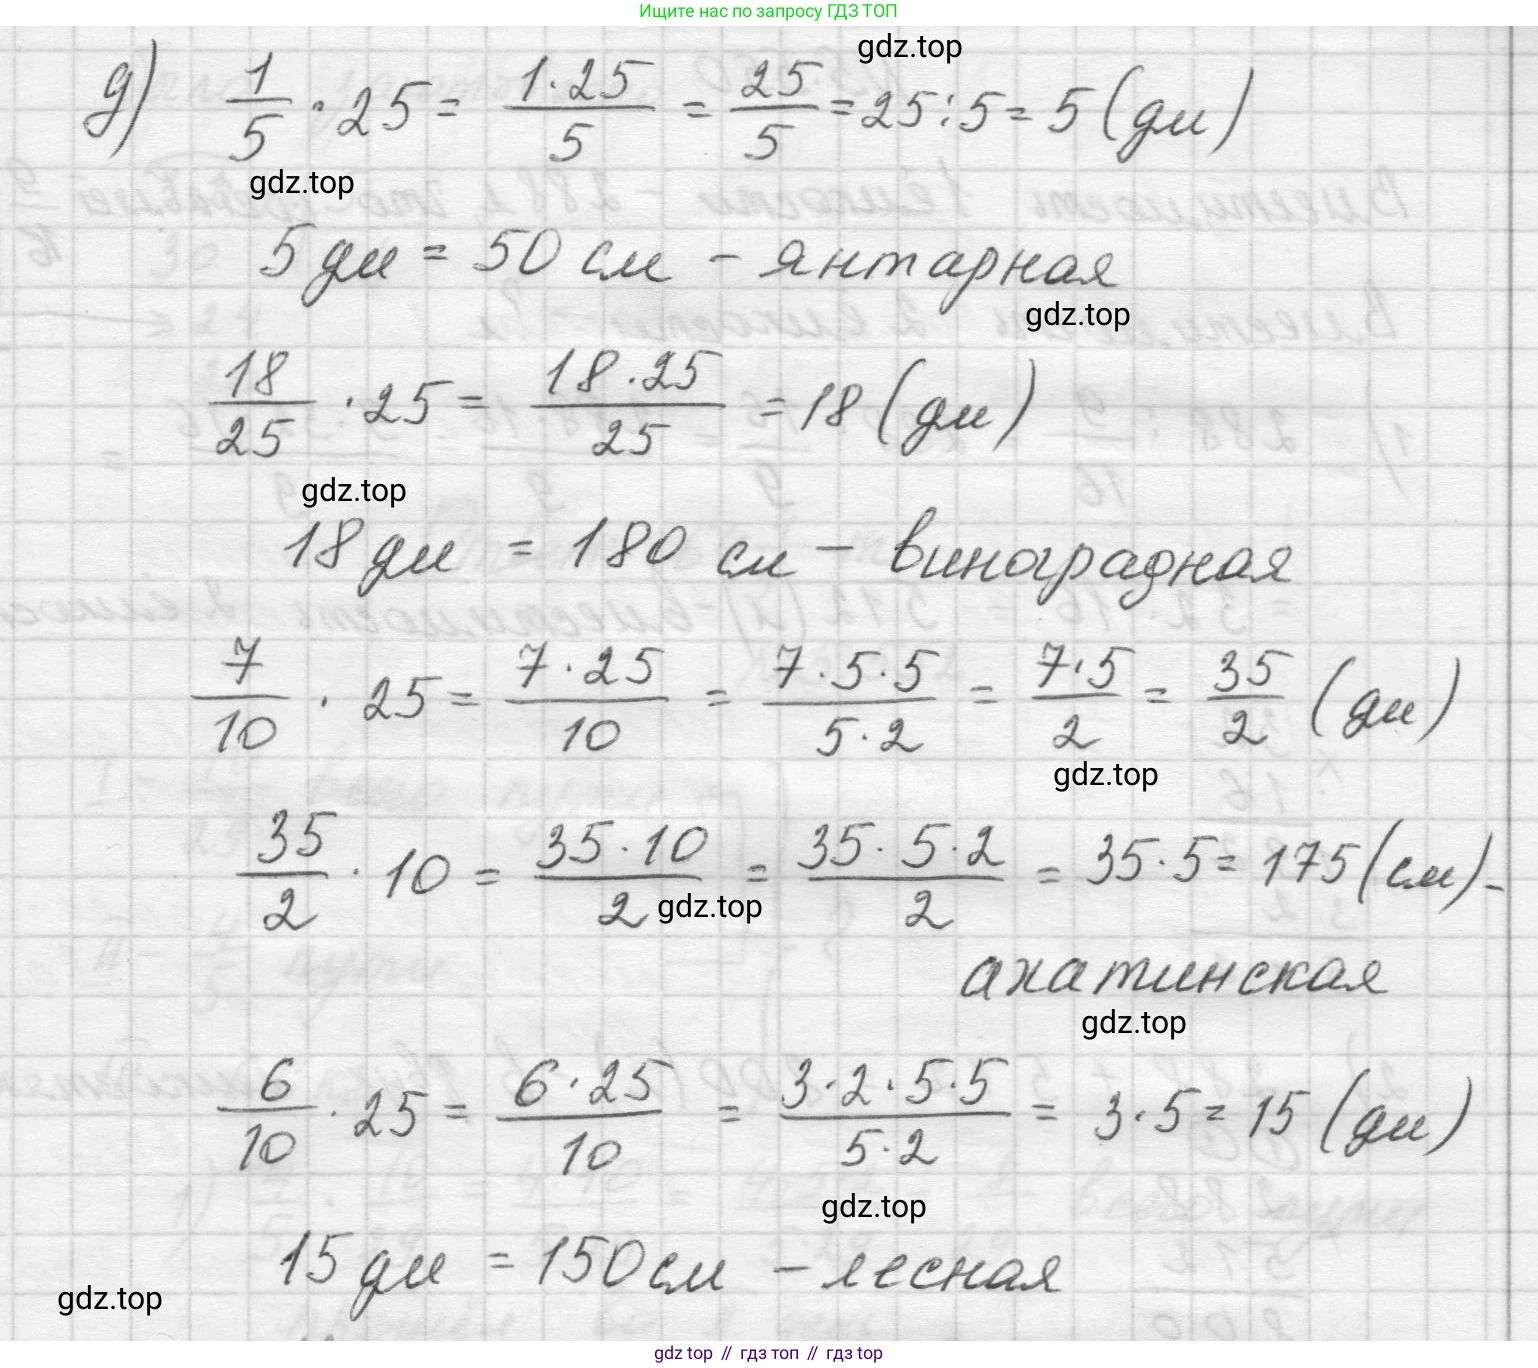 Ищите нас по запросу ГДЗ ТОП
gdz.top
д) 1/5 · 25 = 1·25/5 = 25/5 = 25:5 = 5 (дм)
gdz.top
5 дм = 50 см - янтарная
gdz.top
18/25 · 25 = 18·25/25 = 18 (дм)
gdz.top
18 дм = 180 см - виноградная
7/10 · 25 = 7·25/10 = 7·5·5/5·2 = 7·5/2 = 35/2 (дм)
gdz.top
35/2 · 10 = 35·10/2 = 35·5·2/2 = 35·5 = 175 (см) -
gdz.top
ахатинская
gdz.top
6/10 · 25 = 6·25/10 = 3·2·5·5/5·2 = 3·5 = 15 (дм)
gdz.top
15 дм = 150 см - лесная
gdz.top
gdz top // гдз топ // гдз top